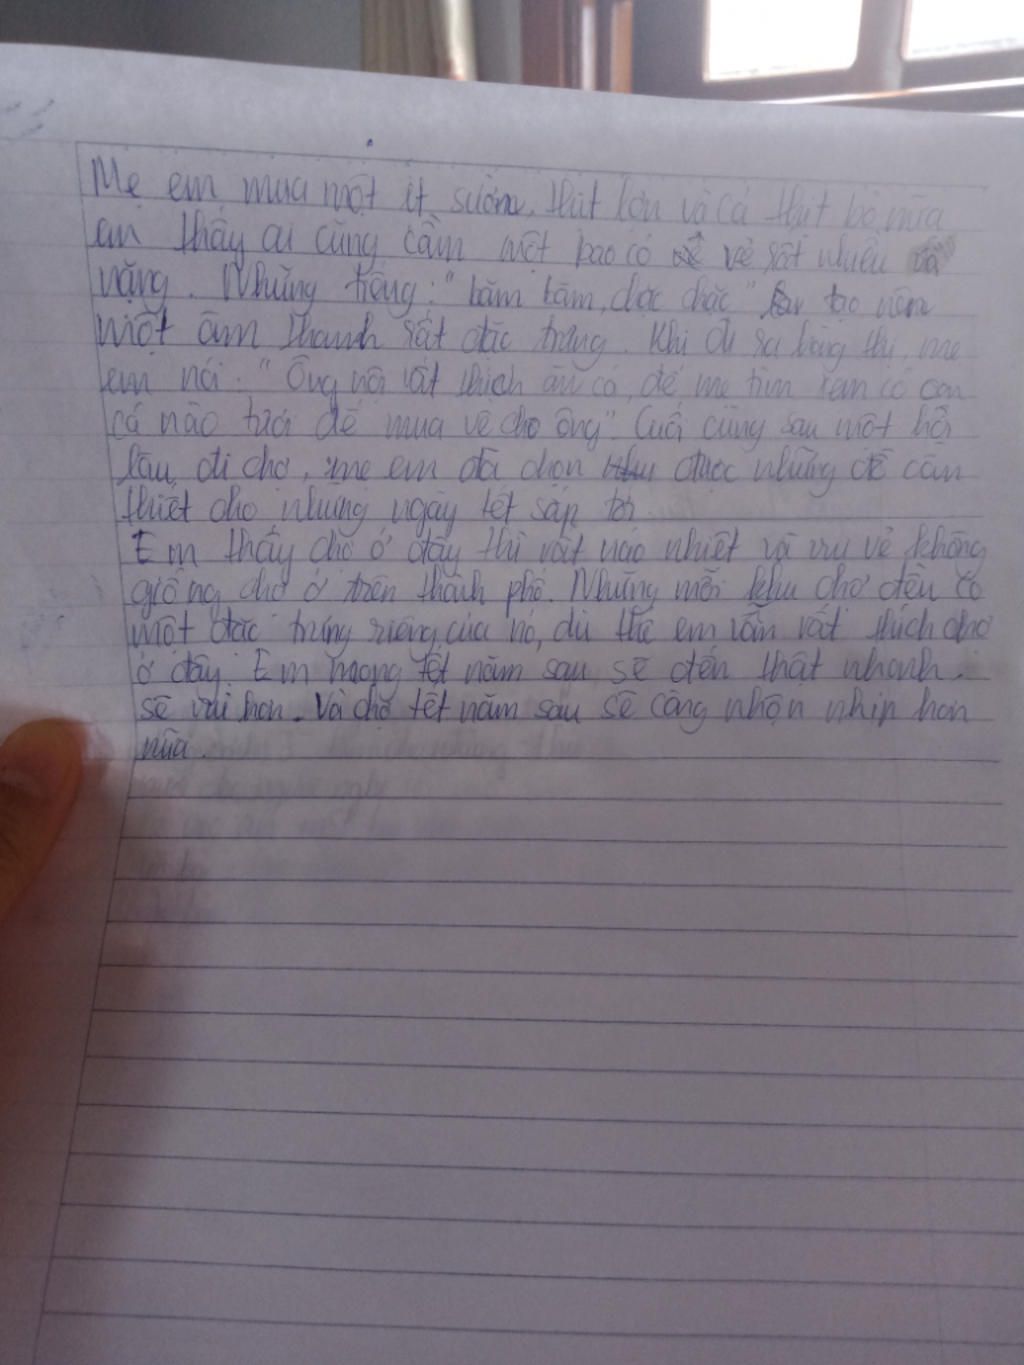 Mẹ em mua một ít sườn, thịt lợn và cả thịt bò nữa
em thấy ai cũng cầm một bao có vẻ rất nhiều và
nặng. Những tiếng: "băm băm, chặc chặc" tạo nên
một âm thanh rất đặc trưng. Khi đi ra hàng thị, mẹ
em nói: "Ông nội rất thích ăn cá, để mẹ tìm xem có con
cá nào tươi để mua về cho ông". Cuối cùng sau một hồi
lâu, đi chợ, mẹ em đã chọn được những đồ cần
thiết cho những ngày tết sắp tới.
Em thấy chợ ở đây thì rất náo nhiệt và vui vẻ không
giống chợ ở trên thành phố. Nhưng mỗi khu chợ đều có
một đặc trưng riêng của nó, dù thế em vẫn rất thích chợ
ở đây. Em mong tết năm sau sẽ đến thật nhanh.
sẽ vui hơn. Và chợ tết năm sau sẽ càng nhộn nhịp hơn
nữa.